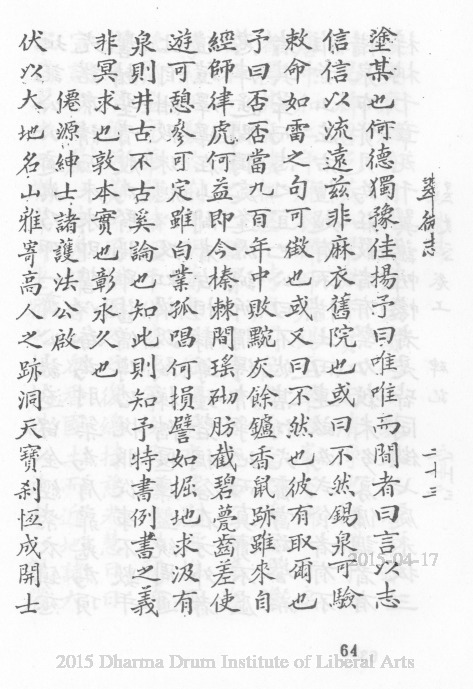 二十三
塗某也何德獨豫佳揚予曰唯唯為間者曰言以志
信信以流遠茲非麻衣舊院也或曰不然錫泉可驗
敕命如雷之句可徵也或又曰不然也彼有取爾也
予曰否否當九百年中敗黦灰餘鑪香鼠跡雖來自
經師律虎何益即今榛棘間瑤砌肪截碧甍齒差使
遊可憩參可定雖白業孤唱何損譬如掘地求汲有
泉則井古不古奚論也知此則知予特書例書之義
非冥求也敦本實也彰永久也
僊源紳士諸護法公啟
伏以大地名山雅寄高人之跡洞天寶剎恆成開士
2015-04-17
64
2015 Dharma Drum Institute of Liberal Arts